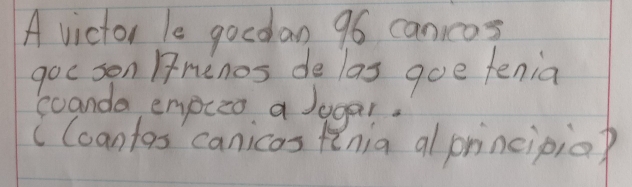 A victor le qocdan 96 canicas
qoc son 17 menos de las qoe tenia
cuando empezo a Jogar.
¿ Coantas canicas tenia al principio?